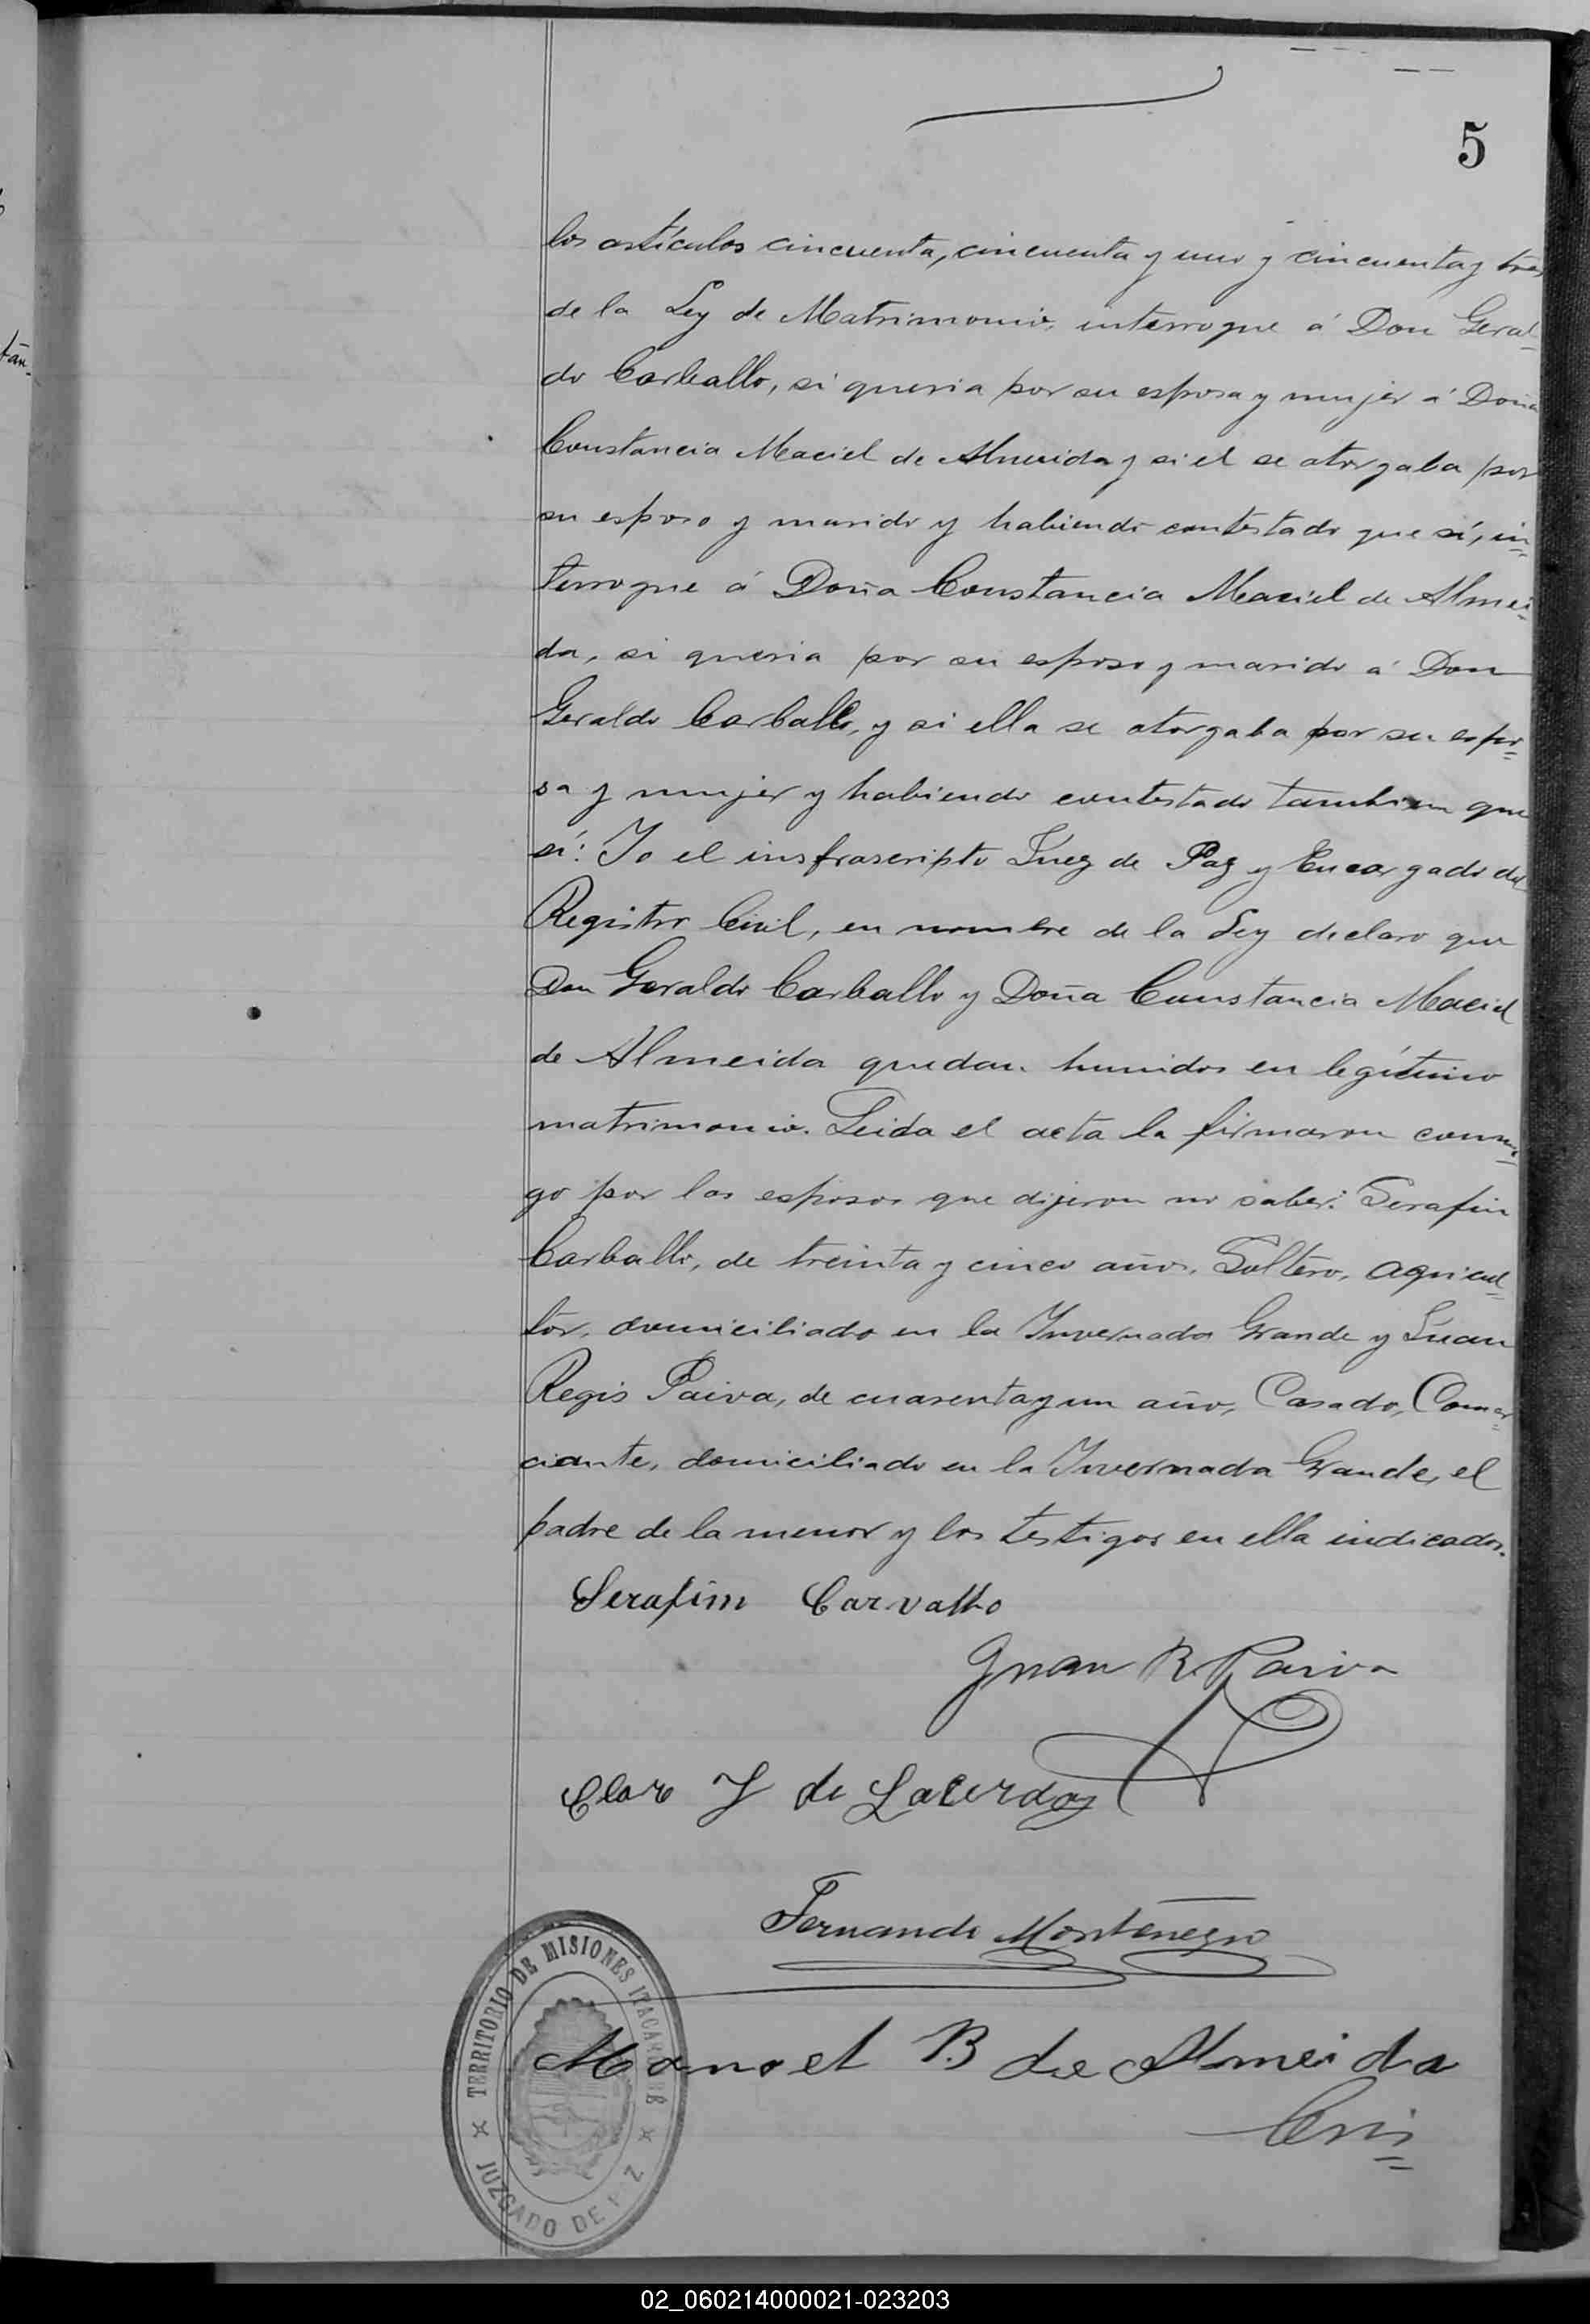 5
los artículos cincuenta, cincuenta y uno y cincuenta y tres
de la Ley de Matrimonio, interrogue á Don Geral-
do Carballo, si queria por su esposa y mujer á Doña
Constancia Maciel de Almeida y si el se otorgaba por
su esposo y marido y habiendo contestado que sí, in-
terrogue á Doña Constancia Maciel de Almei-
da, si queria por su esposo y marido á Don
Geraldo Carballo, y si ella se otorgaba por su espo-
sa y mujer y habiendo contestado tambien que
sí: Yo el insfrascripto Juez de Paz y Encargado del
Registro Civil, en nombre de la Ley declaro que
Don Geraldo Carballo y Doña Constancia Maciel
de Almeida quedan hunidos en legítimo
matrimonio. Leida el acta la firmaron conmi-
go por los esposos que dijeron no saber: Serafin
Carballo, de treinta y cinco años, Soltero, agricul-
tor, domiciliado en la Invernada Grande y Juan
Regis Paiva, de cuarenta y un año, Casado, Comer-
ciante, domiciliado en la Invernada Grande, el
padre de la menor y los testigos en ella indicados.
Serafim Carvalho
Juan R. Paiva
Claro J de Lacerda
Fernando Montenegro
Manoel B de Almeida
TERRITORIO DE MISIONES
JUZGADO DE PAZ
02_060214000021-023203